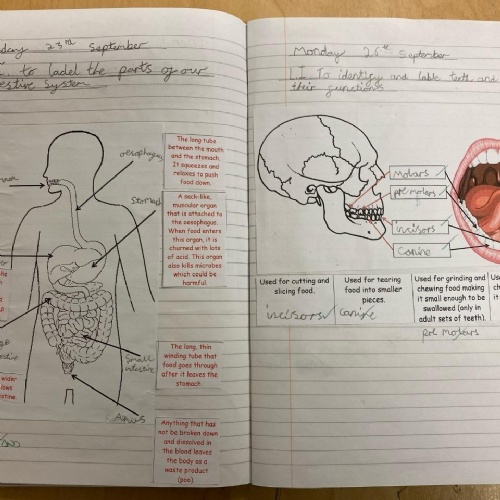 28th September
to ladel the parts of our
estive system
oesophagus
Stomach
Small
intestine
Anus
The long tube
between the mouth
and the stomach.
It squeezes and
relaxes to push
food down.
A sack-like,
muscular organ
that is attached to
the oesophagus.
When food enters
this organ, it is
churned with lots
of acid. This organ
also kills microbes
which could be
harmful.
The long, thin
winding tube that
food goes through
after it leaves the
stomach.
Anything that has
not be broken down
and dissolved in
the blood leaves
the body as a
waste product
(poo).
wider
Monday 25th September
L.I. To identify and lable teeth and
their functions
Molars
pre molars
incisors
Canine
Used for cutting and
slicing food.
incisors
Used for tearing
food into smaller
pieces.
Canine
Used for grinding and
chewing food making
it small enough to be
swallowed (only in
adult sets of teeth).
pre Molars